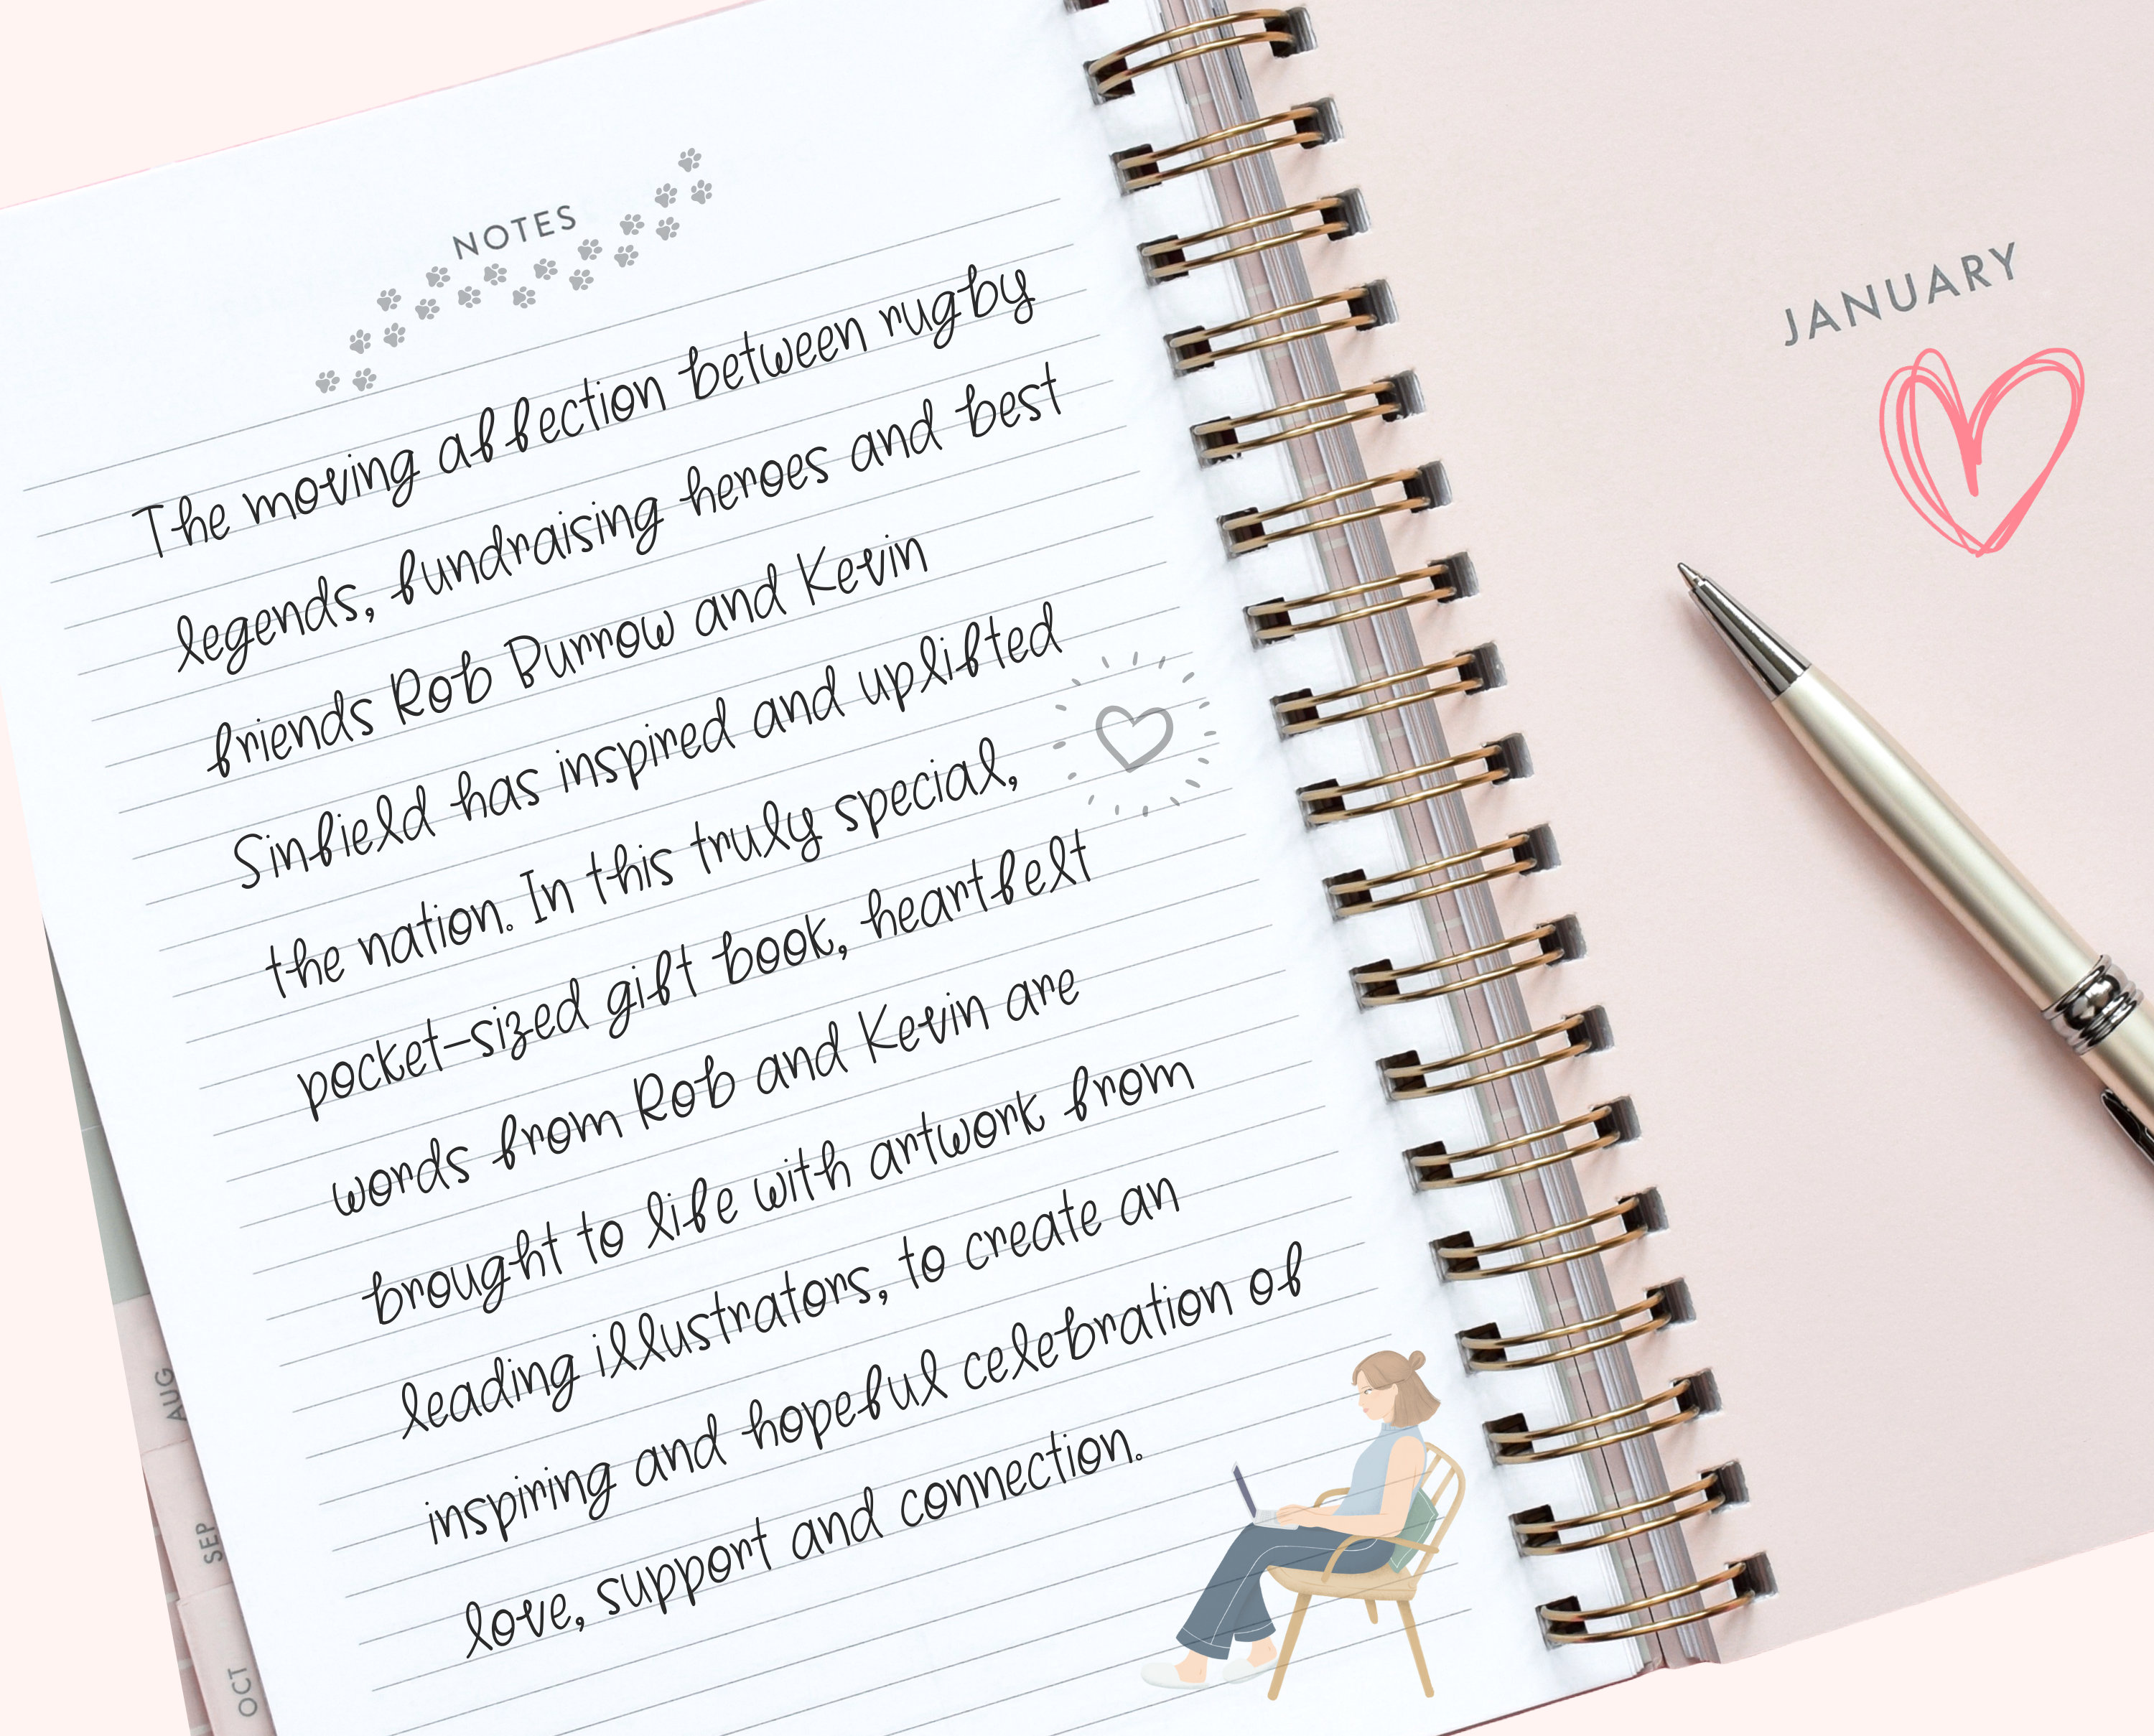 NOTES
The moving affection between rugby
legends, fundraising heroes and best
friends Rob Burrow and Kevin
Sinfield has inspired and uplifted
the nation. In this truly special,
pocket-sized gift book, heartfelt
words from Rob and Kevin are
brought to life with artwork from
leading illustrators, to create an
inspiring and hopeful celebration of
love, support and connection.
JANUARY
AUG
SEP
OCT